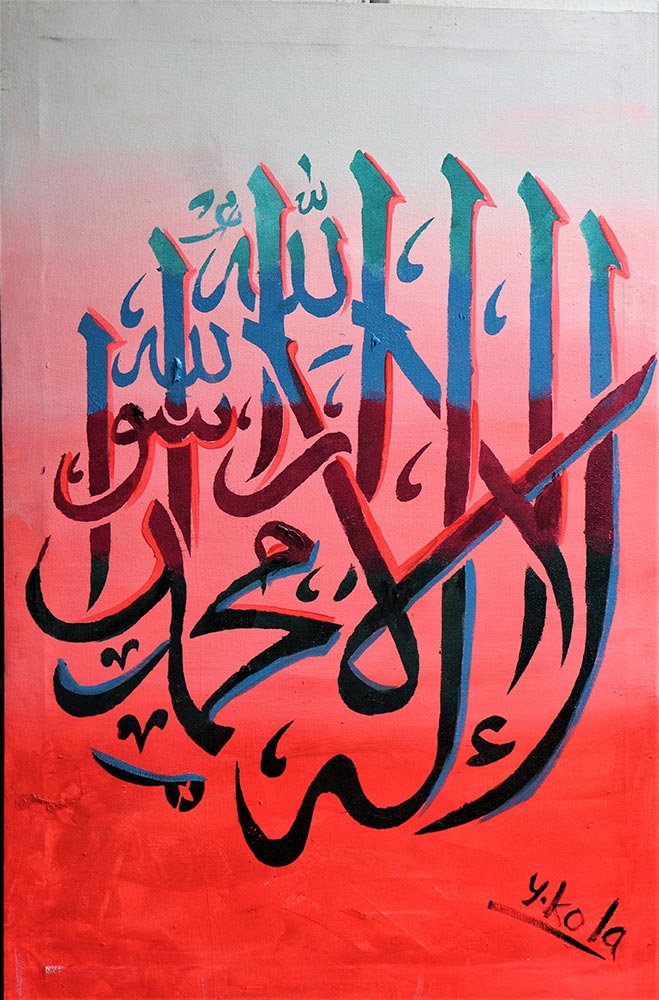 لا إله إلا الله محمد رسول الله
y.kola